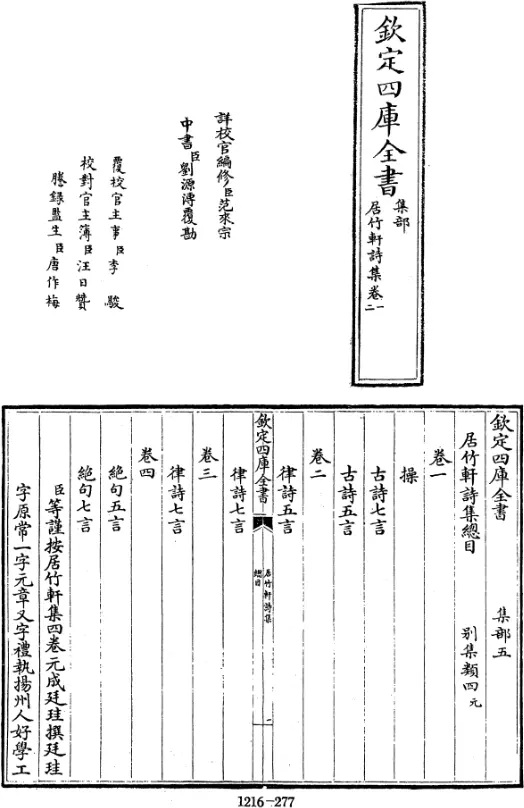 欽定四庫全書
集部
居竹軒詩集卷一
二
詳校官編修臣范來宗
中書臣劉源溥覆勘
覆校官主事臣李駿
校對官主簿臣汪日贊
謄錄監生臣唐作梅
欽定四庫全書 集部五
居竹軒詩集總目 別集類四元
卷一
操
古詩七言
古詩五言
卷二
律詩五言
欽定四庫全書
居竹軒詩集
總目
一
律詩七言
卷三
律詩七言
卷四
絕句五言
絕句七言
臣等謹按居竹軒集四卷元成廷珪撰廷珪
字原常一字元章又字禮執揚州人好學工
1216-277